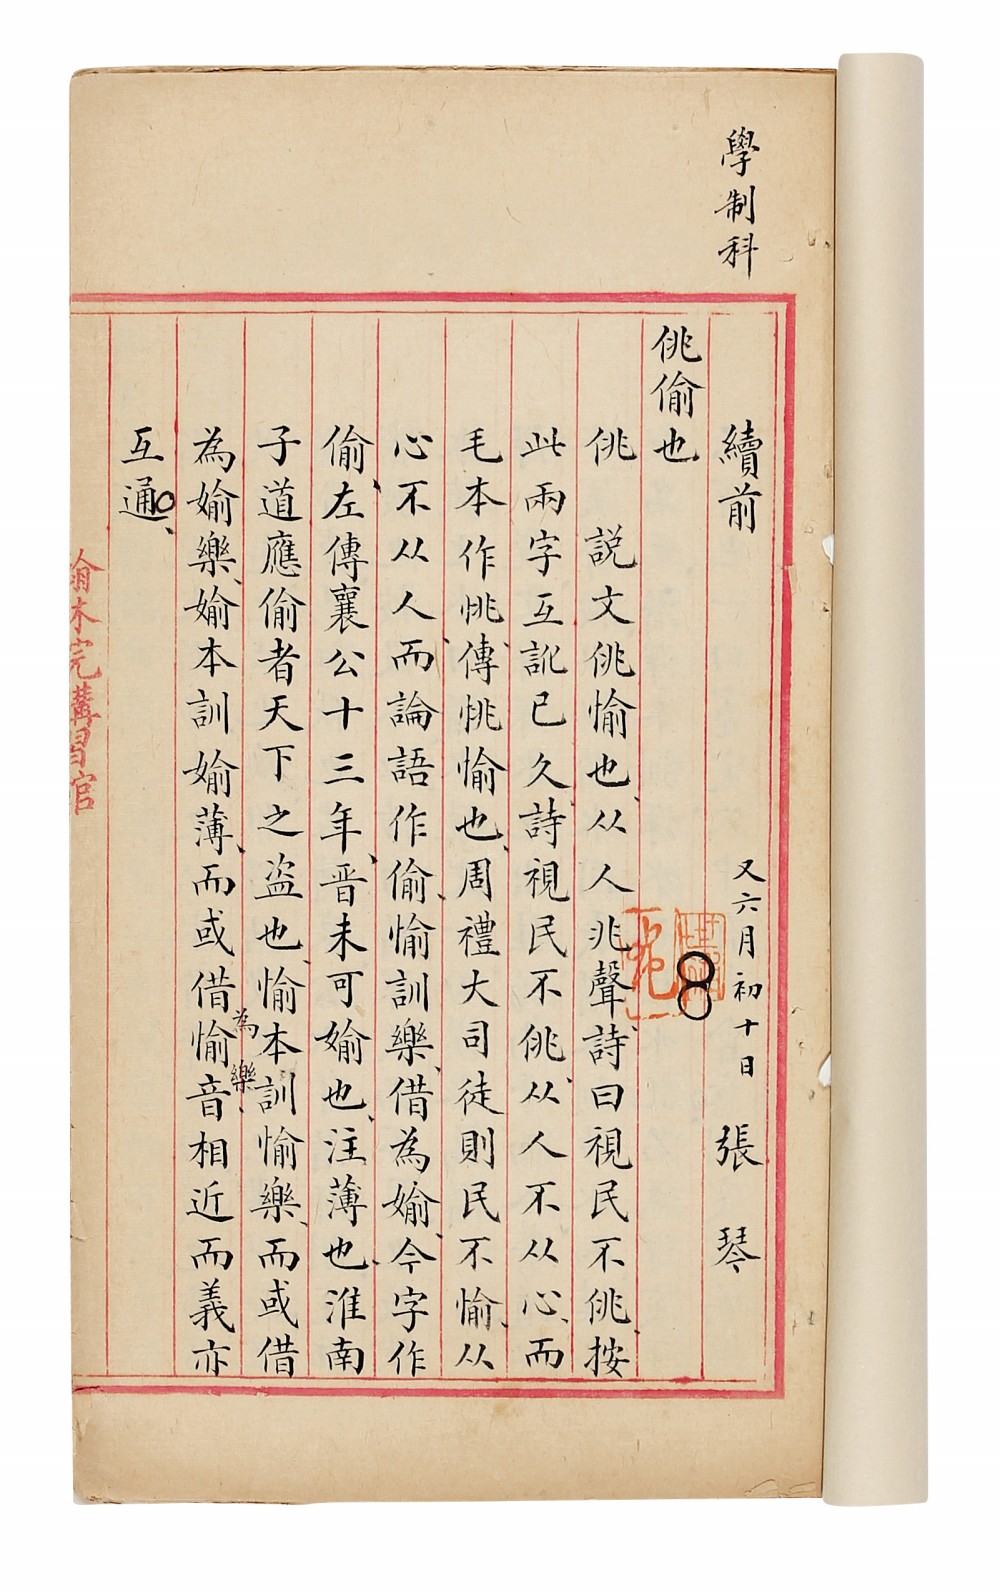 學制科
續前
又六月初十日 張琴
佻偷也
佻 說文佻愉也从人兆聲詩曰視民不佻按
此兩字互訛已久詩視民不佻从人不从心而
毛本作恌傳恌愉也周禮大司徒則民不愉从
心不从人而論語作偷愉訓樂借為媮今字作
偷左傳襄公十三年晉未可媮也注薄也淮南
子道應偷者天下之盜也愉本訓愉樂而或借
為媮樂媮本訓媮薄而或借愉音相近而義亦
為樂
互通
翰林院講習館